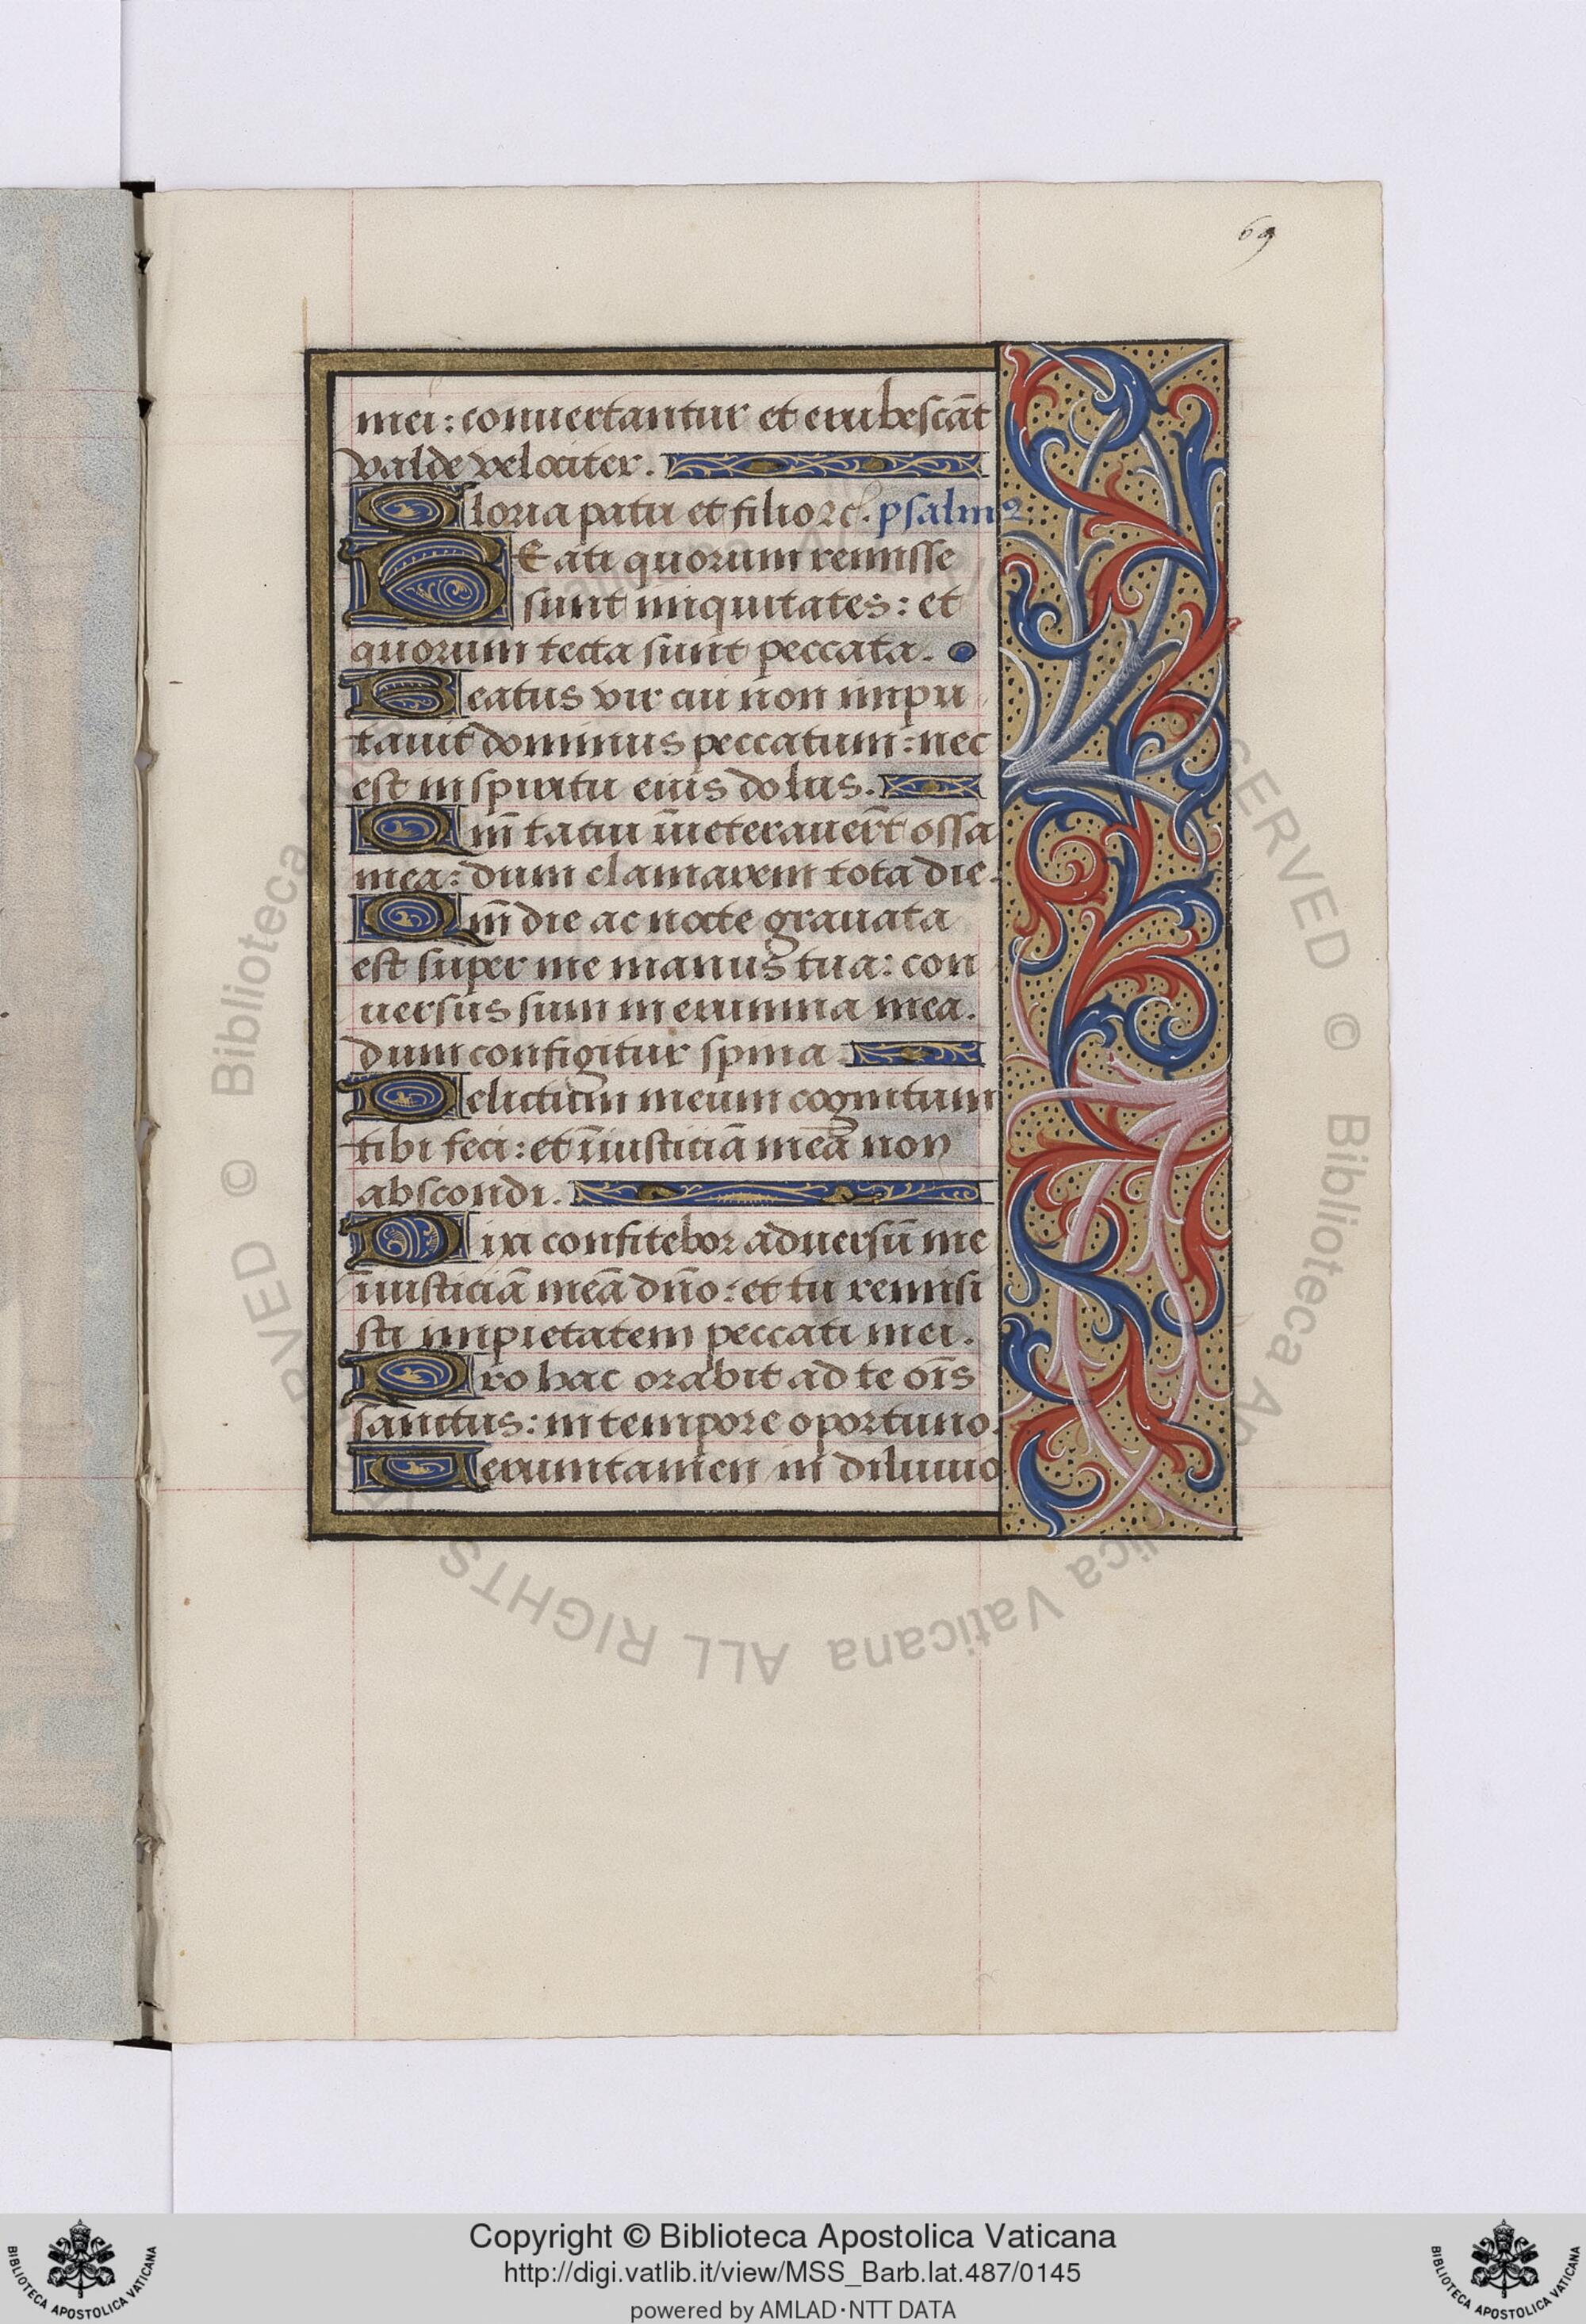 69
mei: conuertantur et erubescāt
valde velociter.
Gloria patri et filio ꝛc̄. psalmꝰ
BEati quorum remisse
sunt iniquitates: et
quorum tecta sunt peccata.
Beatus vir cui non impu
tauit dominus peccatum: nec
est in spiritu eius dolus.
Qm̄ tacui īueterauert̄ ossa
mea: dum clamarem tota die.
Qm̄ die ac nocte grauata
est super me manus tua: con
uersus sum in erumna mea.
dum configitur spina
Delictum meum cognitum
tibi feci: et īiusticiā meā non
abscondi.
Dixi confitebor aduersū me
īiusticiā meā dn̄o: et tu remisi
sti impietatem peccati mei.
Pro hac orabit ad te oīs
sanctus: in tempore oportuno.
Verumtamen in diluuio
© Biblioteca Apostolica Vaticana ALL RIGHTS RESERVED
Copyright © Biblioteca Apostolica Vaticana
http://digi.vatlib.it/view/MSS_Barb.lat.487/0145
powered by AMLAD·NTT DATA
BIBLIOTECA APOSTOLICA VATICANA
BIBLIOTECA APOSTOLICA VATICANA